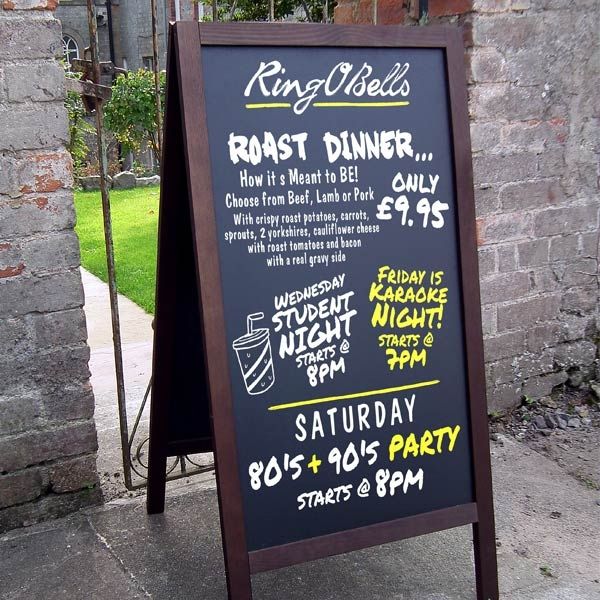 Ring O Bells
ROAST DINNER...
How it s Meant to BE!
Choose from Beef, Lamb or Pork
With crispy roast potatoes, carrots,
sprouts, 2 yorkshires, cauliflower cheese
with roast tomatoes and bacon
with a real gravy side
ONLY
£9.95
WEDNESDAY
STUDENT
NIGHT
STARTS @
8PM
FRIDAY IS
KARAOKE
NIGHT!
STARTS @
7PM
SATURDAY
80'S + 90'S PARTY
STARTS @ 8PM